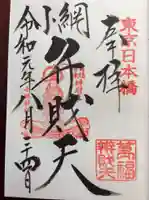 東京日本橋
奉拝
萬福
辨財天
小網
弁財天
令和元年八月二十四日